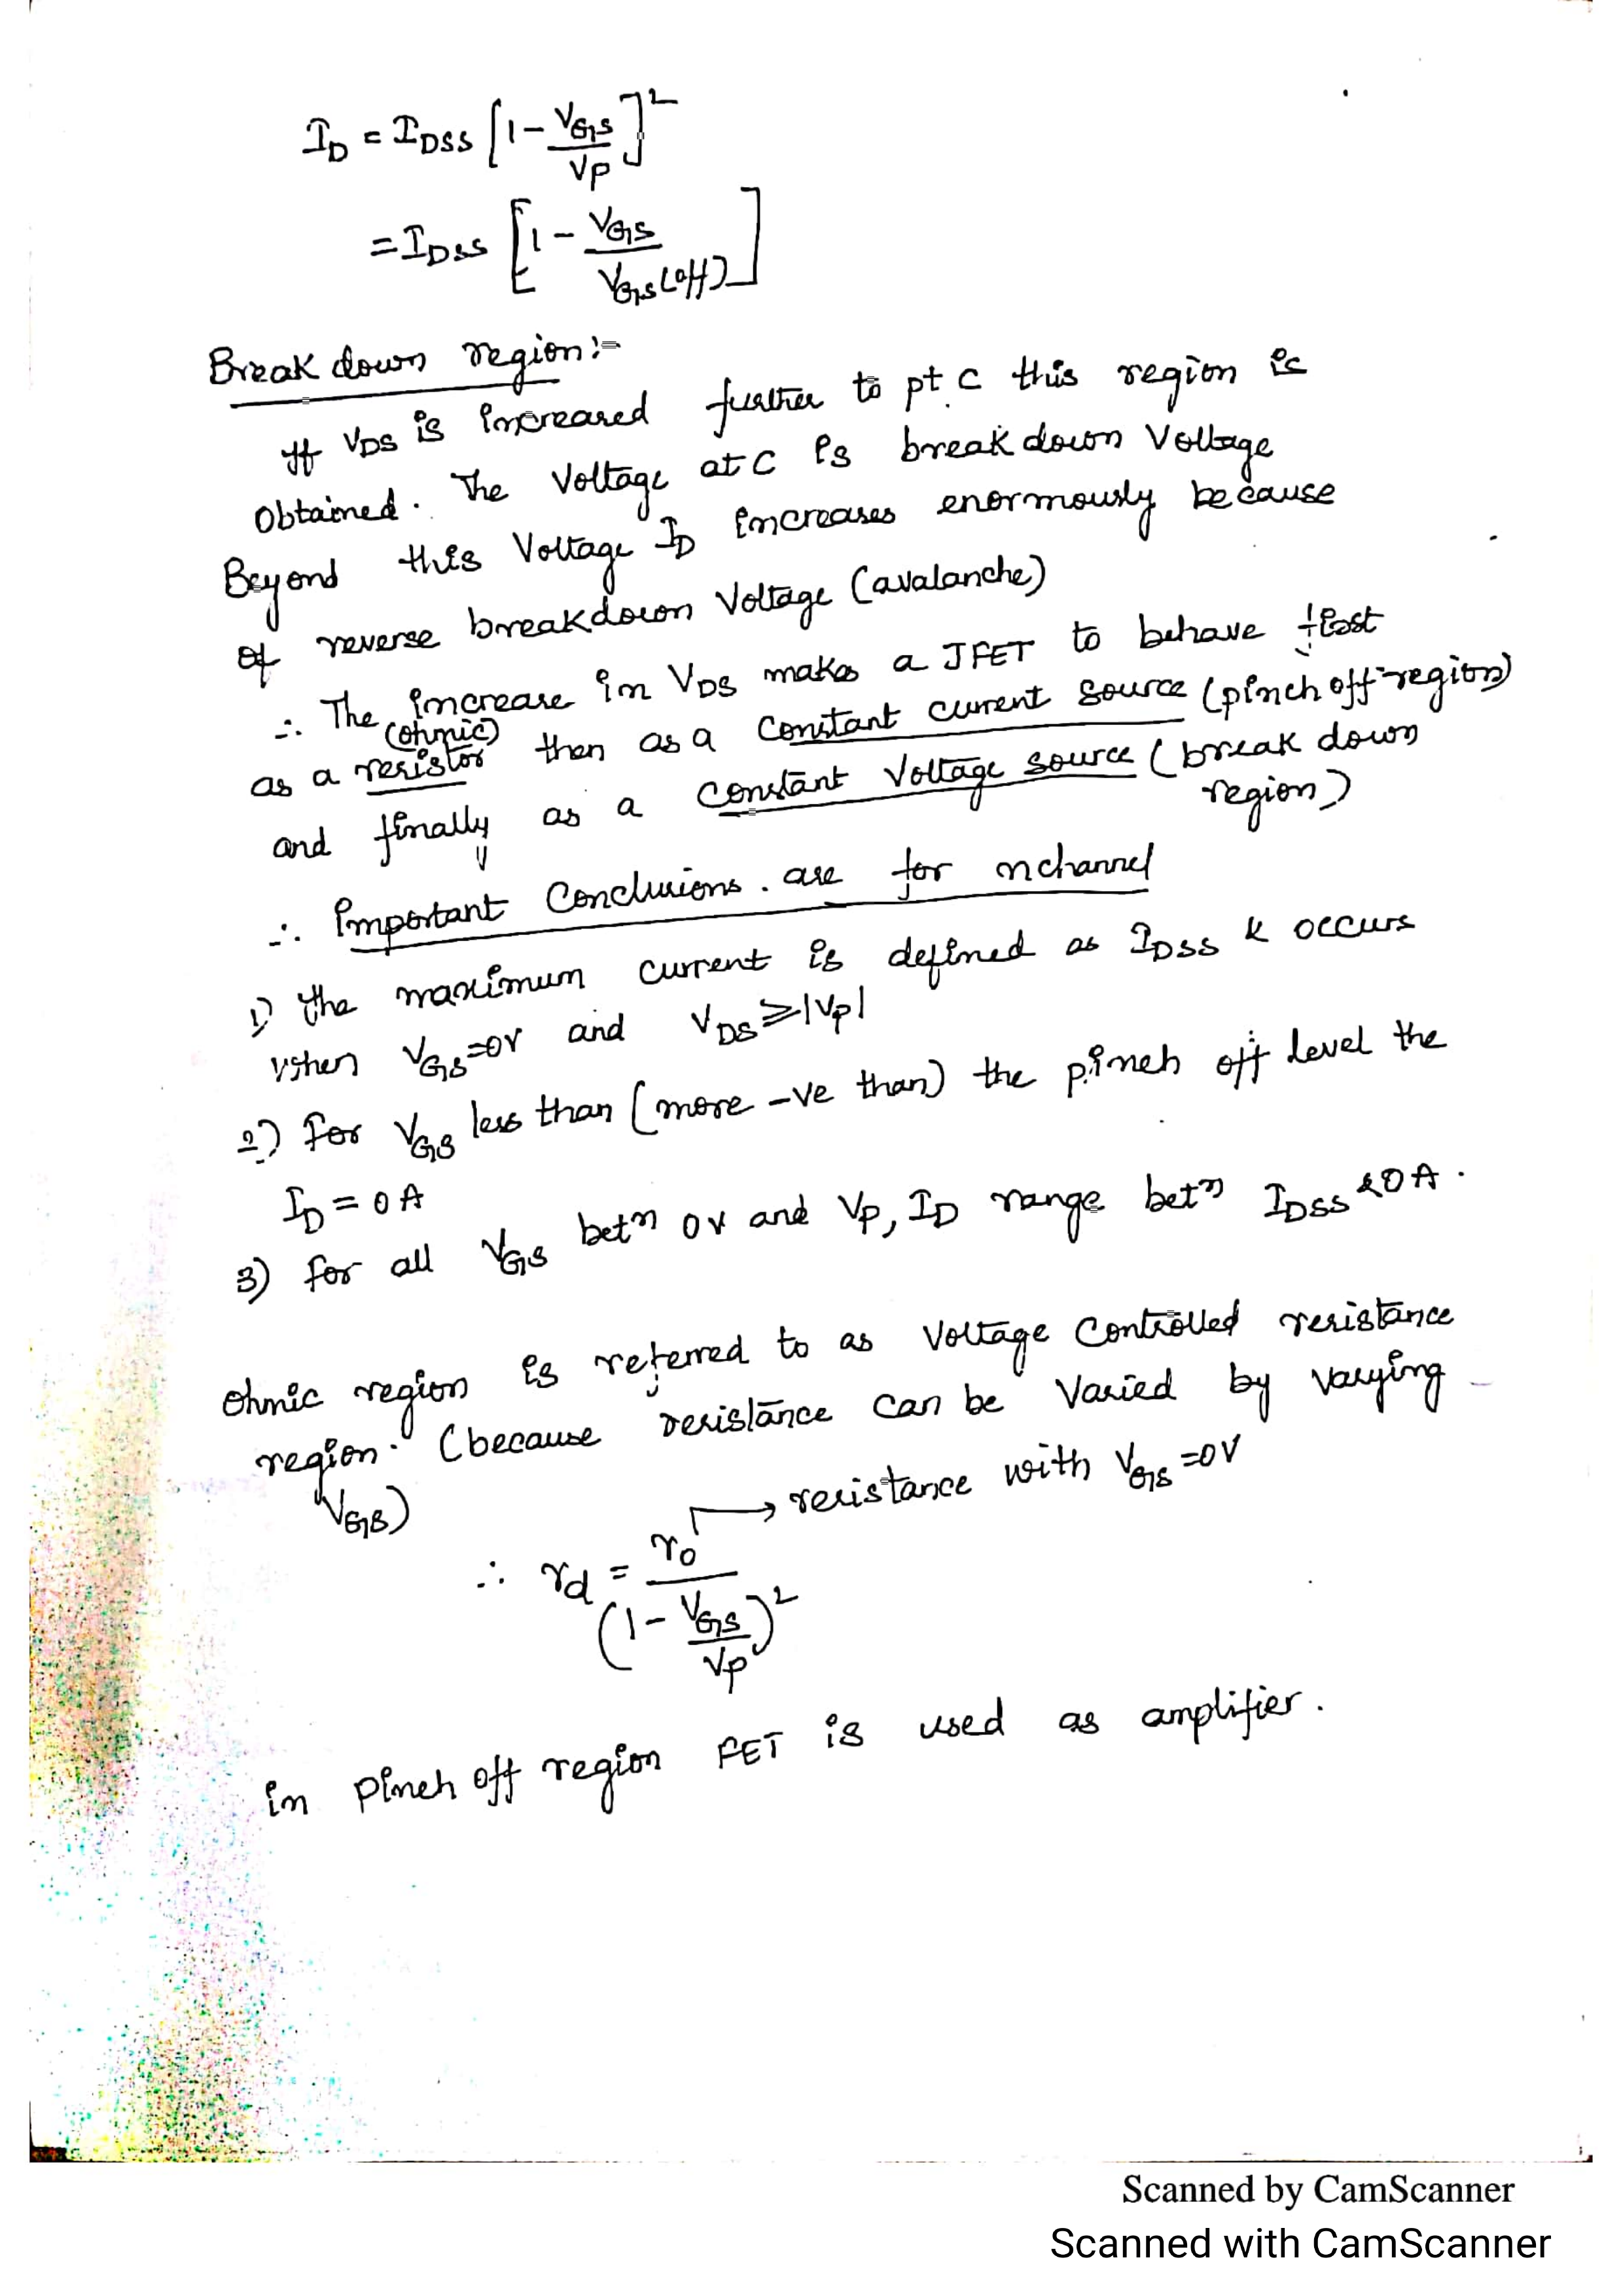 I_D = I_DSS [1 - V_GS / V_P]^2
= I_DSS [1 - V_GS / V_GS(off)]
Break down region:-
If V_DS is increased further to pt. C this region is
obtained. The Voltage at C is break down Voltage
Beyond this Voltage I_D increases enormously because
of reverse breakdown Voltage (avalanche)
∴ The increase in V_DS makes a JFET to behave first
as a resistor (ohmic) then as a constant current source (pinch off region)
and finally as a constant Voltage source (break down
region)
∴ Important Conclusions. are for n channel
1) the maximum current is defined as I_DSS & occurs
when V_GS=0V and V_DS ≥ |V_P|
2) for V_GS less than (more -ve than) the pinch off level the
I_D = 0 A
3) for all V_GS betn 0V and V_P, I_D range betn I_DSS & 0A.
ohmic region is referred to as Voltage Controlled resistance
region. (because resistance can be Varied by Varying
V_GS)
→ resistance with V_GS = 0V
∴ r_d = r_o / (1 - V_GS / V_P)^2
in pinch off region FET is used as amplifier.
Scanned by CamScanner
Scanned with CamScanner